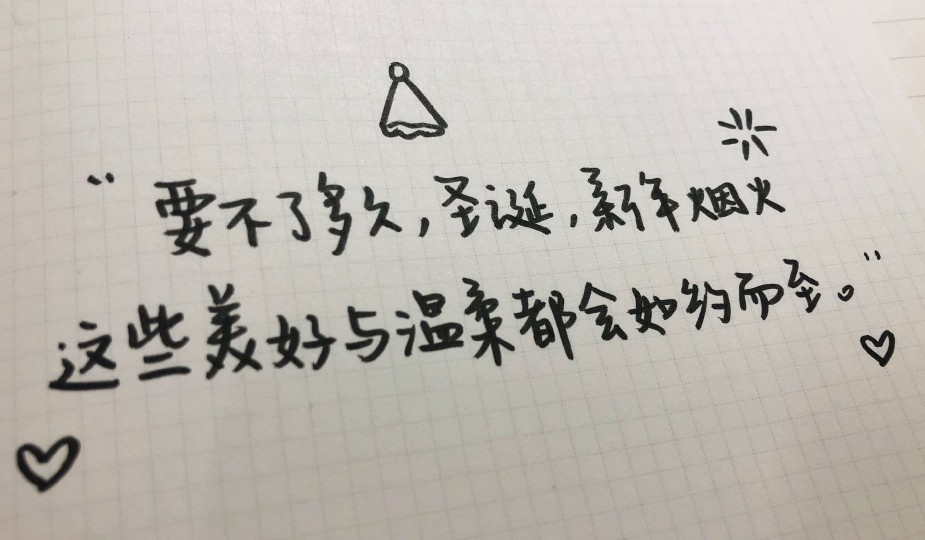 “要不了多久,圣诞,新年烟火
这些美好与温柔都会如约而至。”